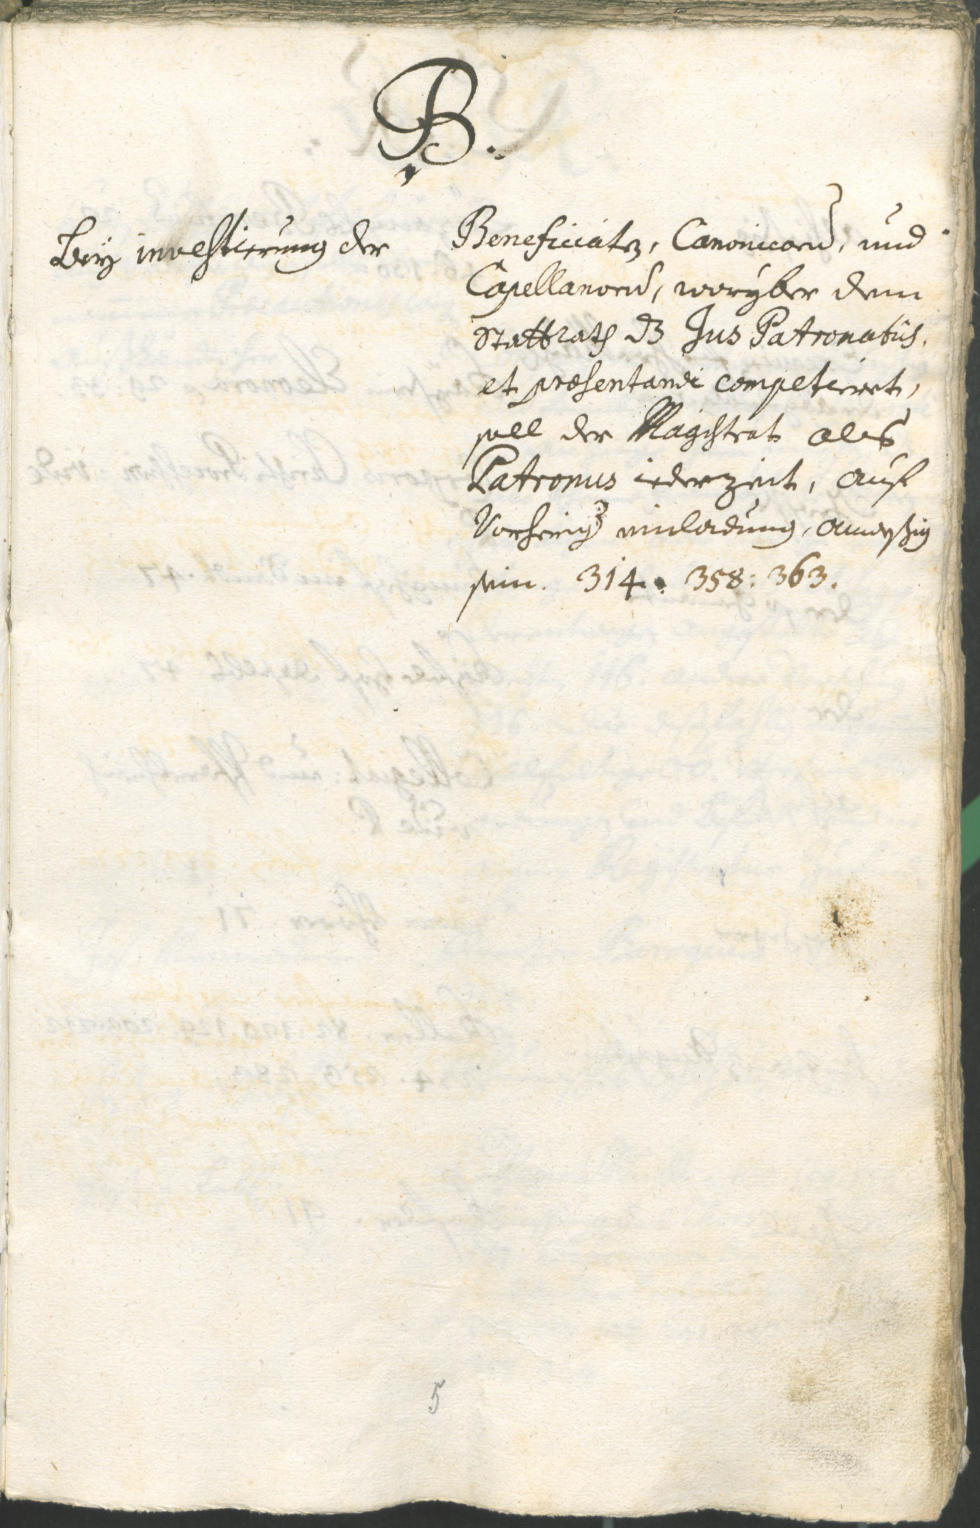 B.
Beÿ investierung der Beneficiaten, Canonicorum, und
Capellanorum, worÿber dem
Stattrath dz Jus Patronatûs,
et præsentandi competieret,
soll der Magistrat alß
Patronus iederzeit, auf
Vorherig einladung, anweßig
sein. 314. 358: 363.
5